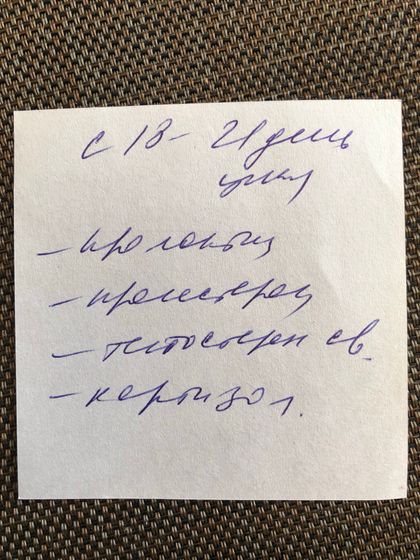 с 18-21 день
цикл
- пролактин
- прогестерон
- тестостерон св.
- кортизол.